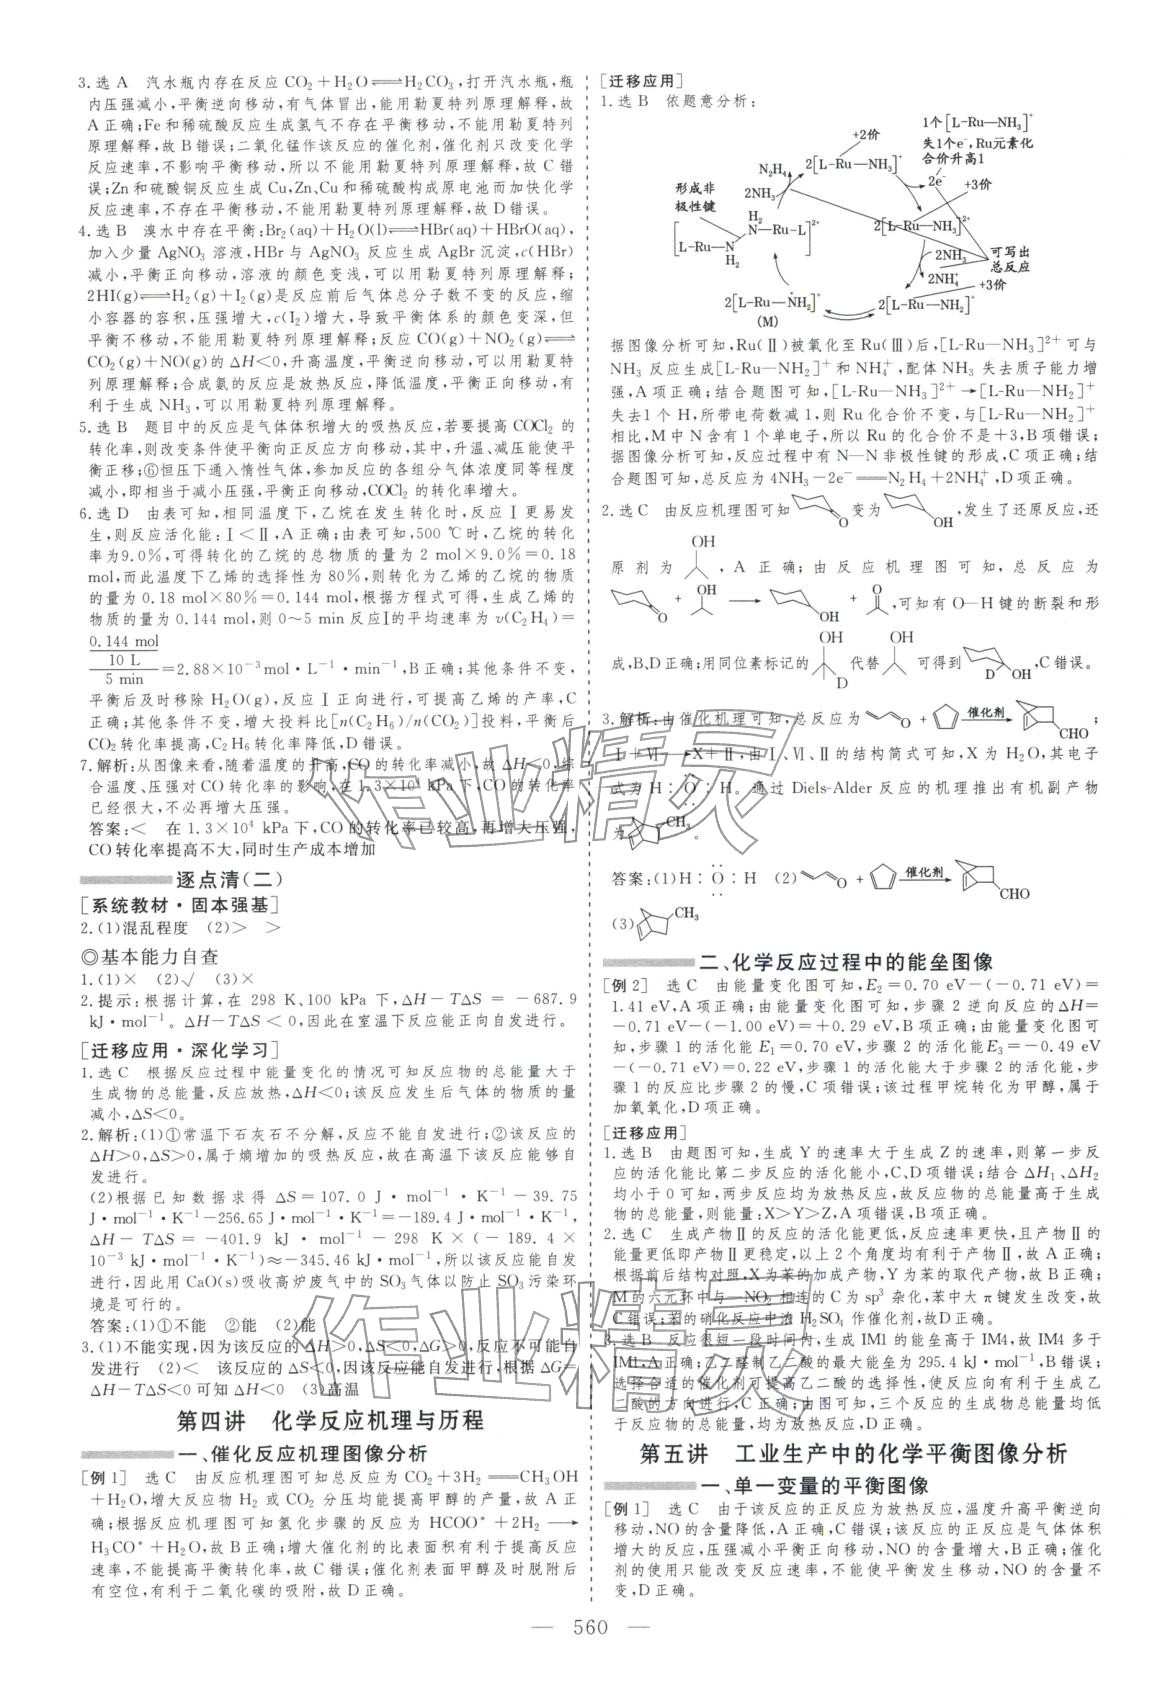 3.选A　汽水瓶内存在反应CO₂＋H₂O⇌H₂CO₃,打开汽水瓶,瓶
内压强减小,平衡逆向移动,有气体冒出,能用勒夏特列原理解释,故
A正确;Fe和稀硫酸反应生成氢气不存在平衡移动,不能用勒夏特列
原理解释,故B错误;二氧化锰作该反应的催化剂,催化剂只改变化学
反应速率,不影响平衡移动,所以不能用勒夏特列原理解释,故C错
误;Zn和硫酸铜反应生成Cu,Zn、Cu和稀硫酸构成原电池而加快化学
反应速率,不存在平衡移动,不能用勒夏特列原理解释,故D错误。
4.选B　溴水中存在平衡:Br₂(aq)+H₂O(l)⇌HBr(aq)+HBrO(aq),
加入少量AgNO₃溶液,HBr与AgNO₃反应生成AgBr沉淀,c(HBr)
减小,平衡正向移动,溶液的颜色变浅,可以用勒夏特列原理解释;
2HI(g)⇌H₂(g)+I₂(g)是反应前后气体总分子数不变的反应,缩
小容器的容积,压强增大,c(I₂)增大,导致平衡体系的颜色变深,但
平衡不移动,不能用勒夏特列原理解释;反应CO(g)+NO₂(g)⇌
CO₂(g)+NO(g)的ΔH＜0,升高温度,平衡逆向移动,可以用勒夏特
列原理解释;合成氨的反应是放热反应,降低温度,平衡正向移动,有
利于生成NH₃,可以用勒夏特列原理解释。
5.选B　题目中的反应是气体体积增大的吸热反应,若要提高COCl₂的
转化率,则改变条件使平衡向正反应方向移动,其中,升温、减压能使平
衡正移;⑥恒压下通入惰性气体,参加反应的各组分气体浓度同等程度
减小,即相当于减小压强,平衡正向移动,COCl₂的转化率增大。
6.选D　由表可知,相同温度下,乙烷在发生转化时,反应Ⅰ更易发
生,则反应活化能:Ⅰ＜Ⅱ,A正确;由表可知,500 ℃时,乙烷的转化
率为9.0%,可得转化的乙烷的总物质的量为2 mol×9.0%＝0.18
mol,而此温度下乙烯的选择性为80%,则转化为乙烯的乙烷的物质
的量为0.18 mol×80%＝0.144 mol,根据方程式可得,生成乙烯的
物质的量为0.144 mol,则0～5 min反应Ⅰ的平均速率为v(C₂H₄)＝
0.144 mol
10 L
5 min
＝2.88×10⁻³mol·L⁻¹·min⁻¹,B正确;其他条件不变,
平衡后及时移除H₂O(g),反应Ⅰ正向进行,可提高乙烯的产率,C
正确;其他条件不变,增大投料比[n(C₂H₆)/n(CO₂)]投料,平衡后
CO₂转化率提高,C₂H₆转化率降低,D错误。
7.解析:从图像来看,随着温度的升高,CO的转化率减小,故ΔH＜0;综
合温度、压强对CO转化率的影响,在1.3×10⁴ kPa下,CO的转化率
已经很大,不必再增大压强。
答案:＜　在1.3×10⁴ kPa下,CO的转化率已较高,再增大压强,
CO转化率提高不大,同时生产成本增加
逐点清(二)
[系统教材·固本强基]
2.(1)混乱程度　(2)＞　＞
◎基本能力自查
1.(1)×　(2)√　(3)×
2.提示:根据计算,在298 K、100 kPa下,ΔH－TΔS＝－687.9
kJ·mol⁻¹。ΔH－TΔS＜0,因此在室温下反应能正向自发进行。
[迁移应用·深化学习]
1.选C　根据反应过程中能量变化的情况可知反应物的总能量大于
生成物的总能量,反应放热,ΔH＜0;该反应发生后气体的物质的量
减小,ΔS＜0。
2.解析:(1)①常温下石灰石不分解,反应不能自发进行;②该反应的
ΔH＞0,ΔS＞0,属于熵增加的吸热反应,故在高温下该反应能够自
发进行。
(2)根据已知数据求得ΔS＝107.0 J·mol⁻¹·K⁻¹－39.75
J·mol⁻¹·K⁻¹－256.65 J·mol⁻¹·K⁻¹＝－189.4 J·mol⁻¹·K⁻¹,
ΔH－TΔS＝－401.9 kJ·mol⁻¹－298 K×(－189.4×
10⁻³ kJ·mol⁻¹·K⁻¹)≈－345.46 kJ·mol⁻¹,所以该反应能自发
进行,因此用CaO(s)吸收高炉废气中的SO₃气体以防止SO₃污染环
境是可行的。
答案:(1)①不能　②能　(2)能
3.(1)不能实现,因为该反应的ΔH＞0,ΔS＜0,ΔG＞0,反应不可能自
发进行　(2)＜　该反应的ΔS＜0,因该反应能自发进行,根据ΔG＝
ΔH－TΔS＜0可知ΔH＜0　(3)高温
第四讲　化学反应机理与历程
一、催化反应机理图像分析
[例1]　选C　由反应机理图可知总反应为CO₂＋3H₂══CH₃OH
＋H₂O,增大反应物H₂或CO₂分压均能提高甲醇的产量,故A正
确;根据反应机理图可知氢化步骤的反应为HCOO*＋2H₂⟶
H₃CO*＋H₂O,故B正确;增大催化剂的比表面积有利于提高反应
速率,不能提高平衡转化率,故C错误;催化剂表面甲醇及时脱附后
有空位,有利于二氧化碳的吸附,故D正确。
[迁移应用]
1.选B　依题意分析:
+2价
1个[L-Ru—NH₃]⁺
失1个e⁻,Ru元素化
合价升高1
N₂H₄
2[L-Ru—NH₃]⁺
2NH₃
2e⁻
+3价
形成非
极性键
2[L-Ru—NH₃]²⁺
[L-Ru—N H₂ H₂ N—Ru-L]²⁺
2NH₃
可写出
总反应
2NH₄⁺
+3价
2[L-Ru—ṄH₂]⁺
(M)
2[L-Ru—NH₂]⁺
据图像分析可知,Ru(Ⅱ)被氧化至Ru(Ⅲ)后,[L-Ru—NH₃]²⁺可与
NH₃反应生成[L-Ru—NH₂]⁺和NH₄⁺,配体NH₃失去质子能力增
强,A项正确;结合题图可知,[L-Ru—NH₃]²⁺→[L-Ru—NH₂]⁺
失去1个H,所带电荷数减1,则Ru化合价不变,与[L-Ru—NH₂]⁺
相比,M中N含有1个单电子,所以Ru的化合价不是＋3,B项错误;
据图像分析可知,反应过程中有N—N非极性键的形成,C项正确;结
合题图可知,总反应为4NH₃－2e⁻══N₂H₄＋2NH₄⁺,D项正确。
2.选C　由反应机理图可知 O 变为 OH ,发生了还原反应,还
OH
原剂为 ,A正确;由反应机理图可知,总反应为
O ＋ OH ⟶ OH ＋ O ,可知有O—H键的断裂和形
成,B、D正确;用同位素标记的 OH D 代替 OH 可得到 D OH ,C错误。
3.解析:由催化机理可知,总反应为 O ＋ 催化剂 CHO ;
Ⅰ＋Ⅵ⟶X＋Ⅱ,由Ⅰ、Ⅵ、Ⅱ的结构简式可知,X为H₂O,其电子
式为H∶O∶H。通过Diels-Alder反应的机理推出有机副产物
为 CH₃ 。
答案:(1)H∶O∶H　(2) O ＋ 催化剂 CHO
(3) CH₃
二、化学反应过程中的能垒图像
[例2]　选C　由能量变化图可知,E₂＝0.70 eV－(－0.71 eV)＝
1.41 eV,A项正确;由能量变化图可知,步骤2逆向反应的ΔH＝
－0.71 eV－(－1.00 eV)＝＋0.29 eV,B项正确;由能量变化图可
知,步骤1的活化能E₁＝0.70 eV,步骤2的活化能E₃＝－0.49 eV
－(－0.71 eV)＝0.22 eV,步骤1的活化能大于步骤2的活化能,步
骤1的反应比步骤2的慢,C项错误;该过程甲烷转化为甲醇,属于
加氧氧化,D项正确。
[迁移应用]
1.选B　由题图可知,生成Y的速率大于生成Z的速率,则第一步反
应的活化能比第二步反应的活化能小,C、D项错误;结合ΔH₁、ΔH₂
均小于0可知,两步反应均为放热反应,故反应物的总能量高于生成
物的总能量,则能量:X＞Y＞Z,A项错误,B项正确。
2.选C　生成产物Ⅱ的反应的活化能更低,反应速率更快,且产物Ⅱ的
能量更低即产物Ⅱ更稳定,以上2个角度均有利于产物Ⅱ,故A正确;
根据前后结构对照,X为苯的加成产物,Y为苯的取代产物,故B正确;
M的六元环中与—NO₂相连的C为sp³杂化,苯中大π键发生改变,故
C错误;苯的硝化反应中浓H₂SO₄作催化剂,故D正确。
3.选B　反应很短一段时间内,生成IM1的能垒高于IM4,故IM4多于
IM1,A正确;乙二醛制乙二酸的最大能垒为295.4 kJ·mol⁻¹,B错误;
选择合适的催化剂可提高乙二酸的选择性,使反应向有利于生成乙
二酸的方向进行,C正确;由图可知,三个反应的生成物总能量均低
于反应物的总能量,均为放热反应,D正确。
第五讲　工业生产中的化学平衡图像分析
一、单一变量的平衡图像
[例1]　选C　由于该反应的正反应为放热反应,温度升高平衡逆向
移动,NO的含量降低,A正确,C错误;该反应的正反应是气体体积
增大的反应,压强减小平衡正向移动,NO的含量增大,B正确;催化
剂的使用只能改变反应速率,不能使平衡发生移动,NO的含量不
变,D正确。
— 560 —
作业精灵
作业精灵